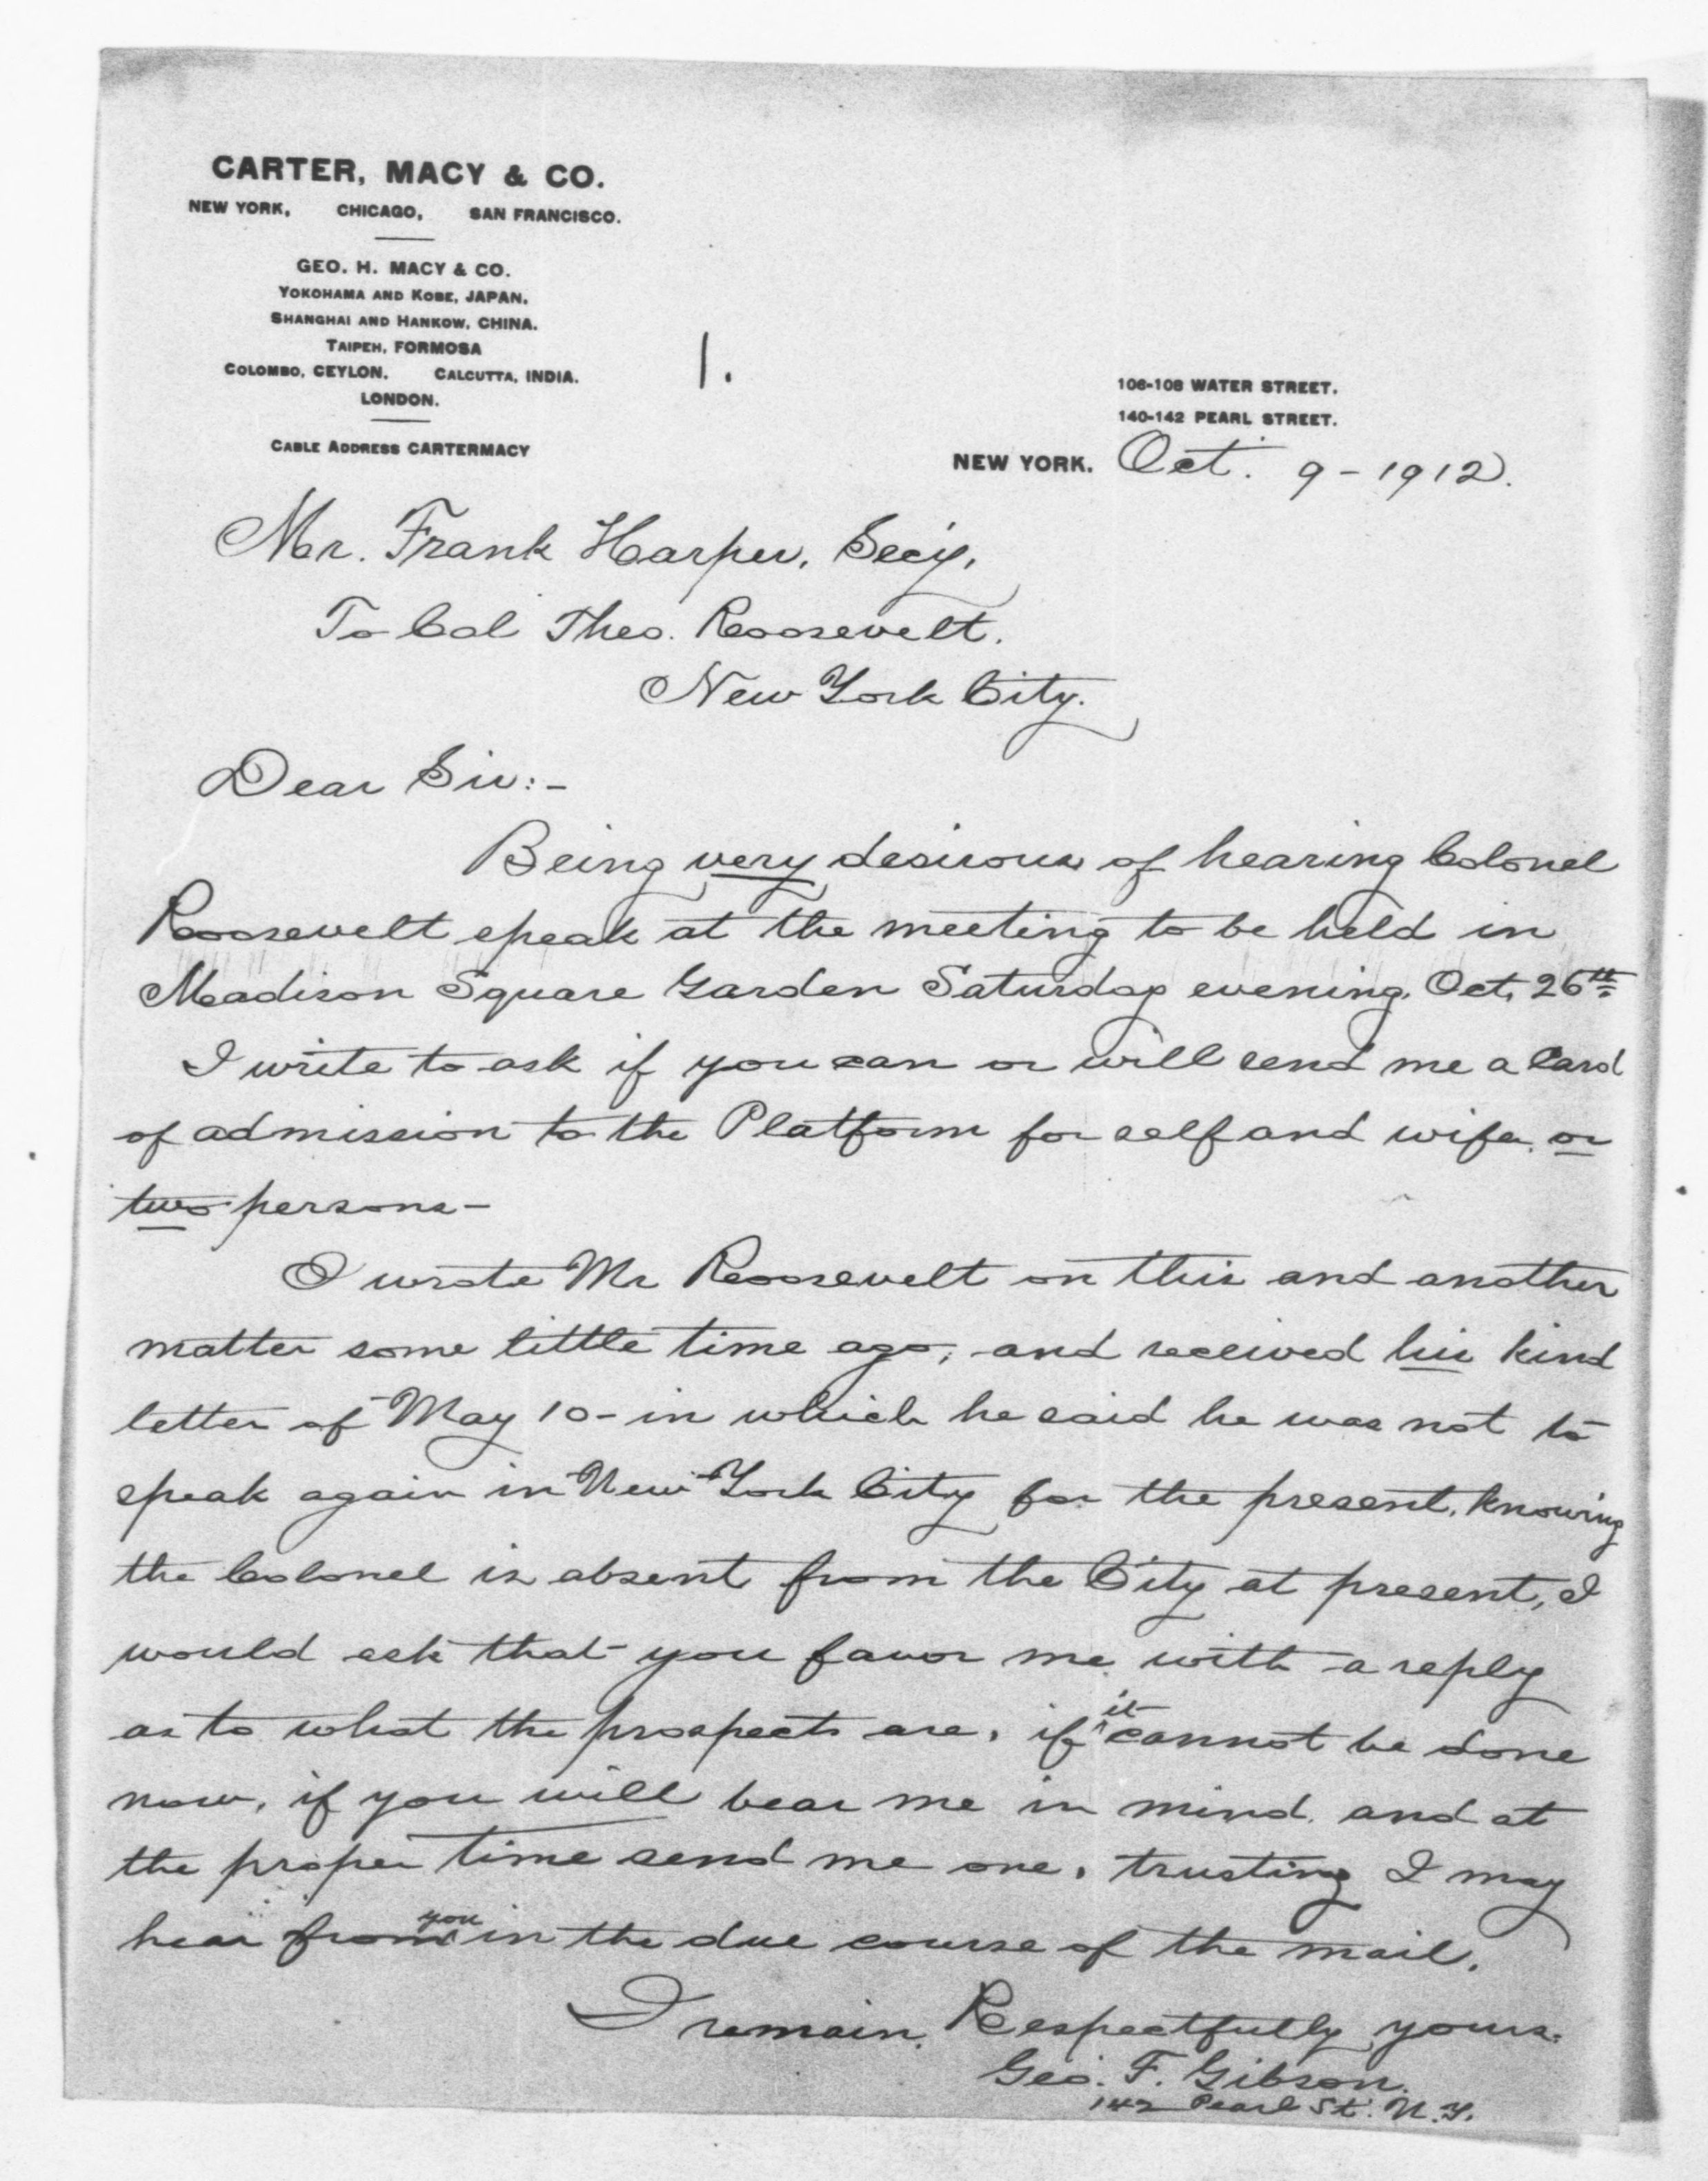 CARTER, MACY & CO.
NEW YORK, CHICAGO, SAN FRANCISCO.
GEO. H. MACY & CO.
YOKOHAMA AND KOBE, JAPAN.
SHANGHAI AND HANKOW, CHINA.
TAIPEH, FORMOSA
COLOMBO, CEYLON. CALCUTTA, INDIA.
LONDON.
CABLE ADDRESS CARTERMACY
1.
106-108 WATER STREET.
140-142 PEARL STREET.
NEW YORK. Oct. 9 - 1912.
Mr. Frank Harper, Secy,
To Col Theo. Roosevelt.
New York City.
Dear Sir:-
Being very desirous of hearing Colonel
Roosevelt speak at the meeting to be held in
Madison Square Garden Saturday evening, Oct, 26th
I write to ask if you can or will send me a Card
of admission to the Platform for self and wife, or
two persons-
I wrote Mr Roosevelt on this and another
matter some little time ago, and received his kind
letter of May 10 - in which he said he was not to
speak again in New York City for the present, knowing
the Colonel is absent from the City at present, I
would ask that you favor me with a reply
as to what the prospects are, if it cannot be done
now, if you will bear me in mind, and at
the proper time send me one, trusting I may
hear from you in the due course of the mail.
I remain, Respectfully yours.
Geo. F. Gibson.
142 Pearl St. N.Y.